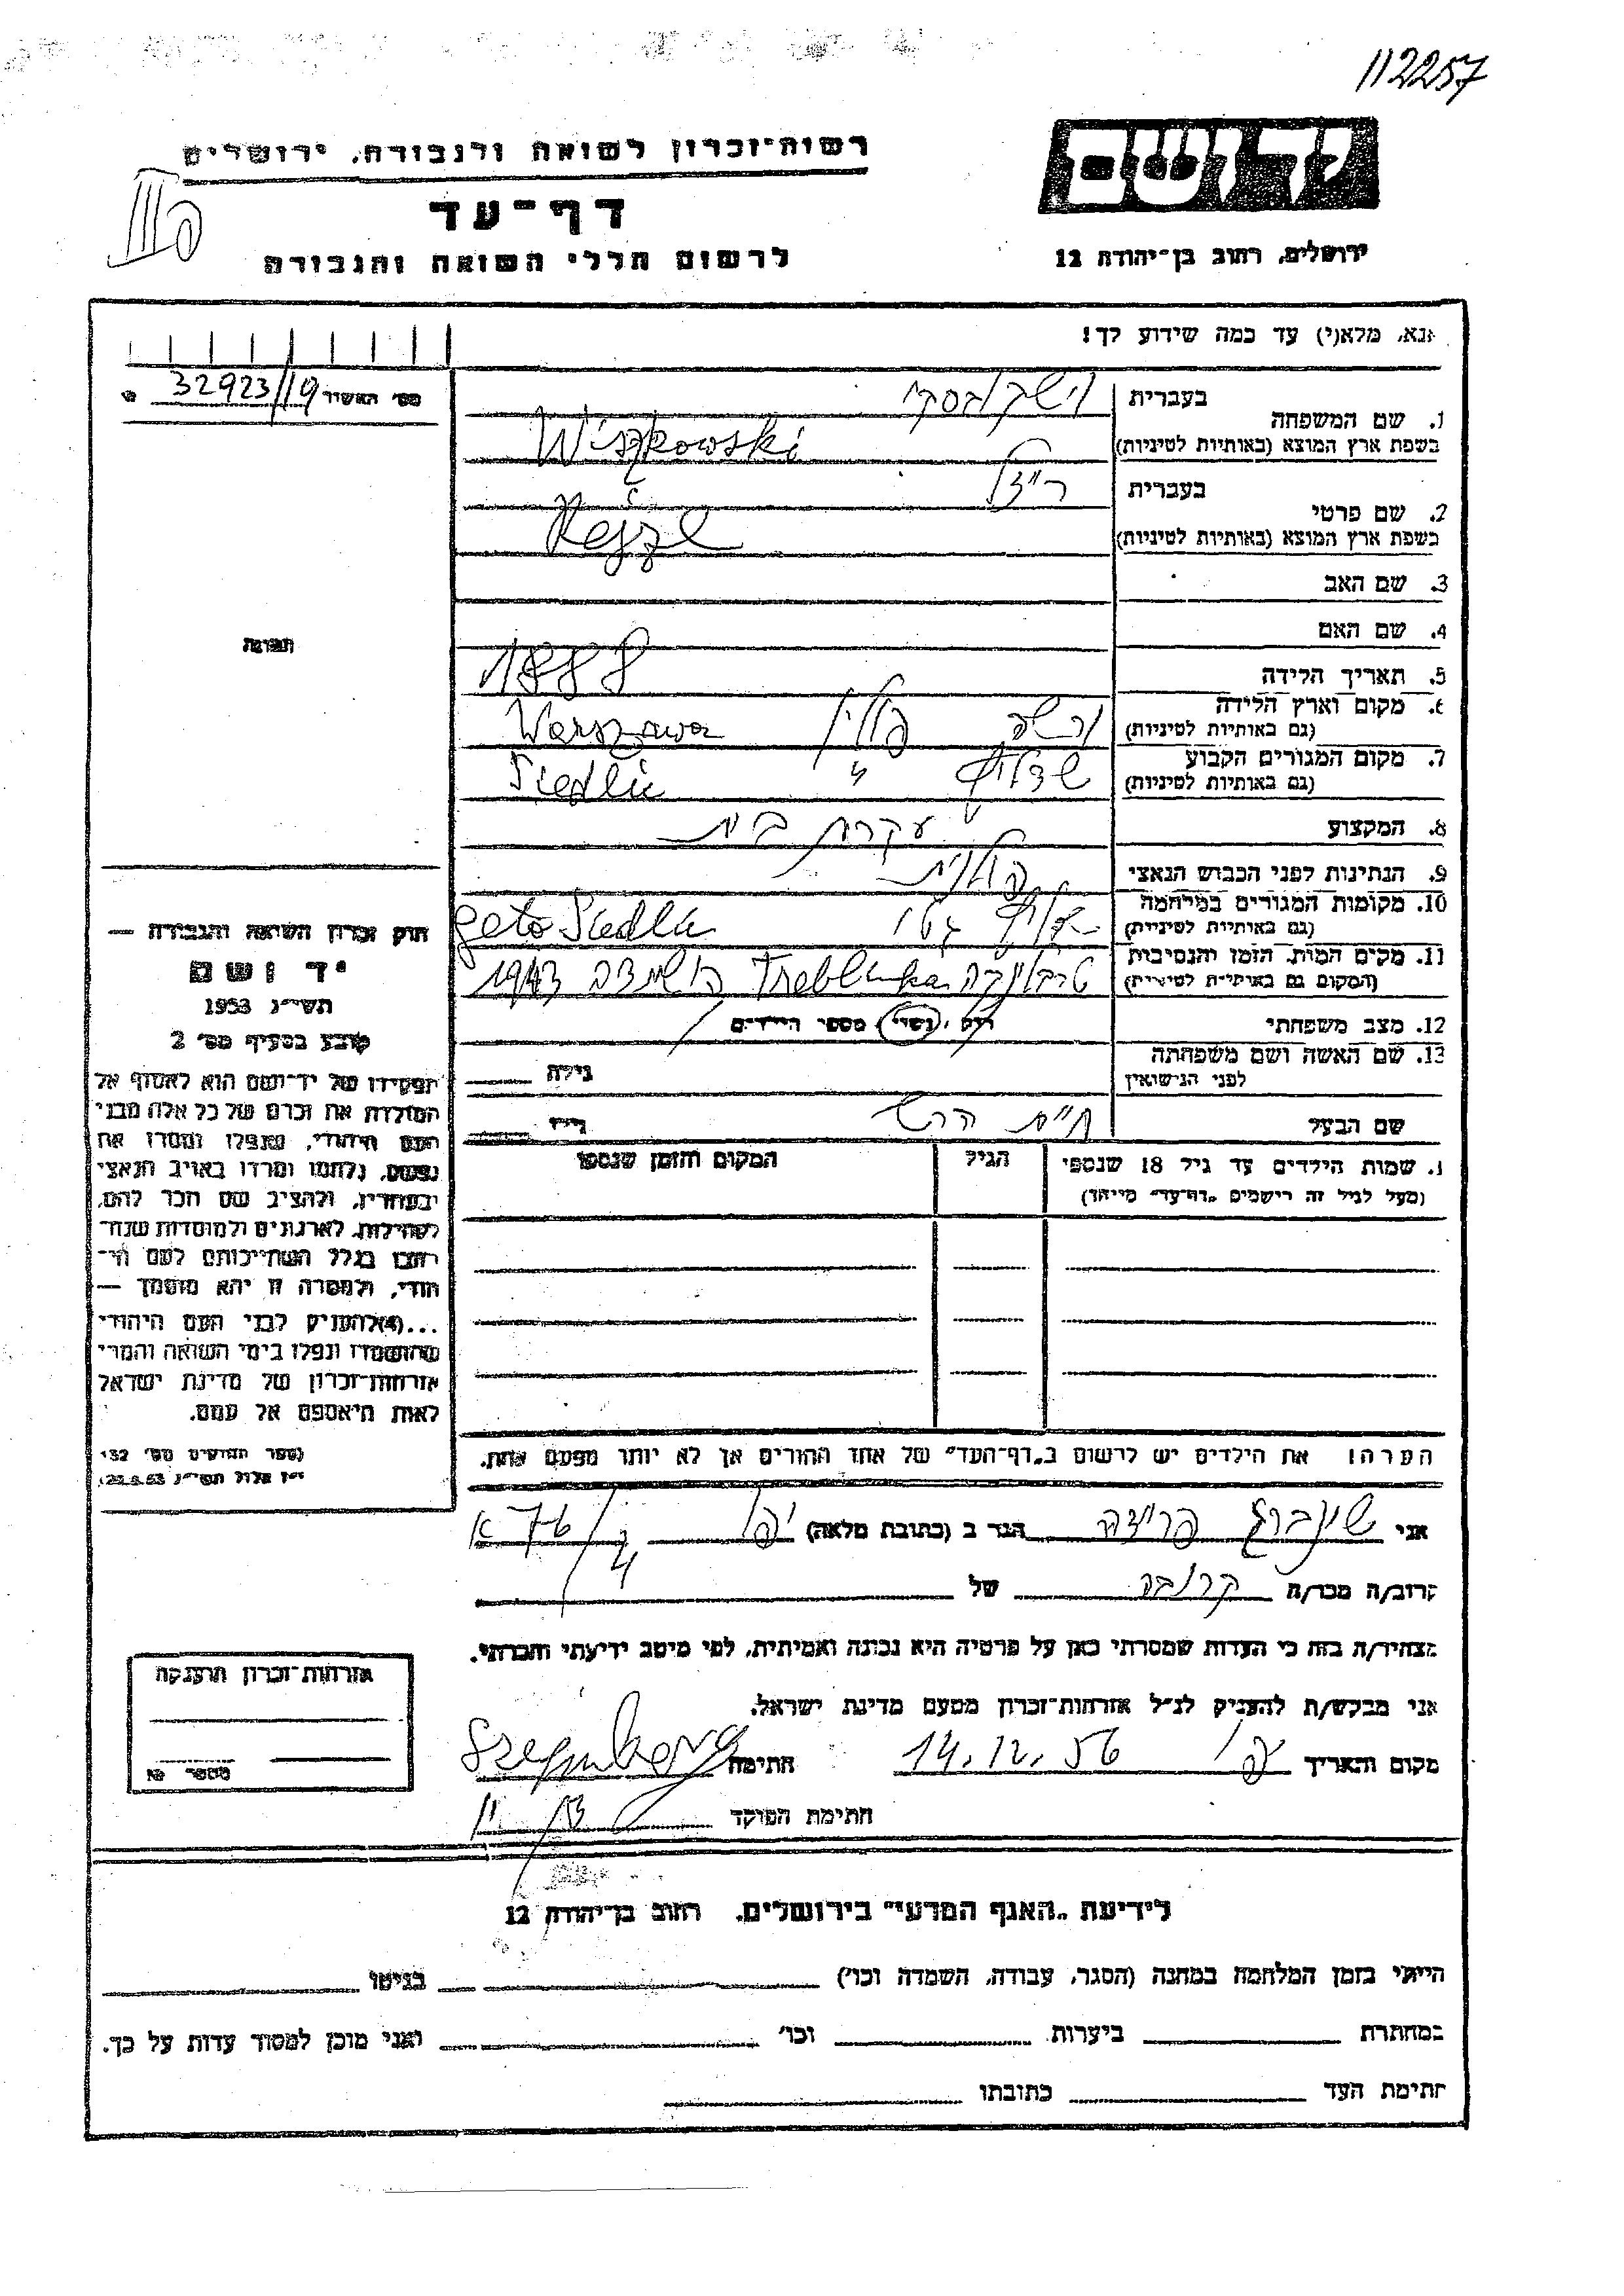 112257
רשות־זכרון לשואה ולגבורה, ירושלים
דף־עד
לרשום חללי השואה והגבורה
ידושם
ירושלים, רחוב בן־יהודה 12
אנא, מלא(י) עד כמה שידוע לך!
מס׳ האשיר 32923/19
1. שם המשפחה
בעברית וישקובסקי
בשפת ארץ המוצא (באותיות לטיניות) Wiszkowski
2. שם פרטי
בעברית רייזל
בשפת ארץ המוצא (באותיות לטיניות) Rejzl
3. שם האב
4. שם האם
5. תאריך הלידה 1888
6. מקום וארץ הלידה
(גם באותיות לטיניות) ורשה פולין Warszawa
7. מקום המגורים הקבוע
(גם באותיות לטיניות) שדליץ " Siedlic
8. המקצוע עקרת בית
9. הנתינות לפני הכבוש הנאצי פולנית
10. מקומות המגורים במלחמה
(גם באותיות לטיניות) שדליץ גטו geto Siedlic
11. מקום המות, הזמן והנסיבות
(המקום גם באותיות לטיניות) טרבלינקה Treblinka בהשמדה 1943
12. מצב משפחתי רווק, נשוי, מספר הילדים
13. שם האשה ושם משפחתה
לפני הנישואין
גילה
שם הבעל חיים הרש
גילו
שמות הילדים עד גיל 18 שנספו
(מעל לגיל זה רישמים „דף־עד״ מיוחד)
הגיל
המקום והזמן שנספו
הערה: את הילדים יש לרשום ב„דף־העד״ של אחד ההורים אך לא יותר מפעם אחת.
תמונה
חוק זכרון השואה והגבורה —
יד ושם
תשי״ג 1953
קובע בסעיף מס׳ 2
תפקידו של יד־ושם הוא לאסוף אל
המולדת את זכרם של כל אלה מבני
העם היהודי, שנפלו ומסרו את
נפשם, נלחמו ומרדו באויב הנאצי
ובעוזריו, ולהציב שם וזכר להם,
לקהילות, לארגונים ולמוסדות שנח־
רבו בגלל השתייכותם לעם הי־
הודי, ולמטרה זו יהא מוסמך —
...(4)להעניק לבני העם היהודי
שהושמדו ונפלו בימי השואה והמרי
אזרחות־זכרון של מדינת ישראל
לאות היאספם אל עמם.
(ספר החוקים מס׳ 132
י״ז אלול תשי״ג 28.8.53)
אני שינברג פרידה הגר ב (כתובת מלאה) יפו
קרוב/ה מכר/ה קרובה של
מצהיר/ה בזה כי העדות שמסרתי כאן על פרטיה היא נכונה ואמיתית, לפי מיטב ידיעתי והכרתי.
אני מבקש/ת להעניק לנ״ל אזרחות־זכרון מטעם מדינת ישראל.
מקום והאריך יפו 14.12.56 חתימה
חתימת הפוקד
אזרחות־זכרון הוענקה
מספר
לידיעת „האגף המדעי״ בירושלים, רחוב בן־יהודה 12
הייתי בזמן המלחמה במחנה (הסגר, עבודה, השמדה וכו׳) בגיטו
במחתרת ביערות וכו׳ ואני מוכן למסור עדות על כך.
חתימת העד כתובתו